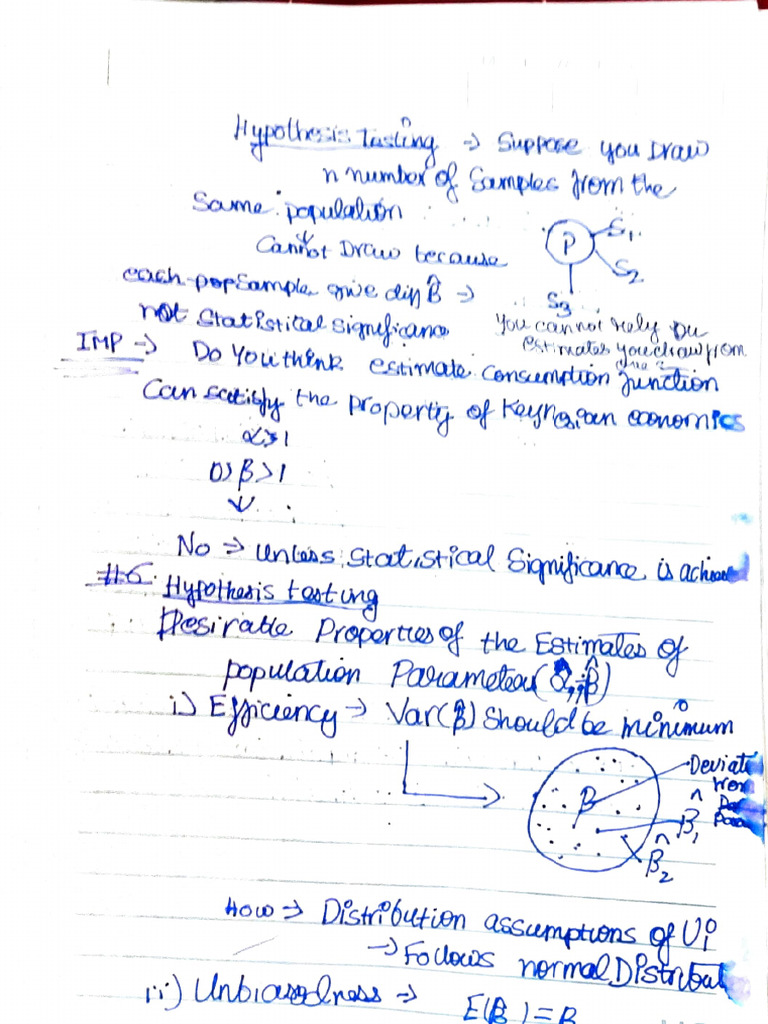 Hypothesis Tasting → Suppose you Draw
n number of Samples from the
Same population
Cannot Draw because
P
S1
S2
S3
each pop Sample give diff β̂ →
not Statistical Significance
You cannot rely on
estimates you draw from
one
IMP → Do You think estimate consumption function
Can satisfy the property of Keynesian economics
α>1
0> β >1
↓
No → Unless Statistical Significance is
#6. Hypothesis testing
Desirable Properties of the Estimates of
population Parameters (α̂, β̂)
i) Efficiency → Var(β̂) Should be minimum
β
β̂1
β̂2
How → Distribution assumptions of Ui
→ Follows normal
ii) Unbiasedness → E(β̂) = β